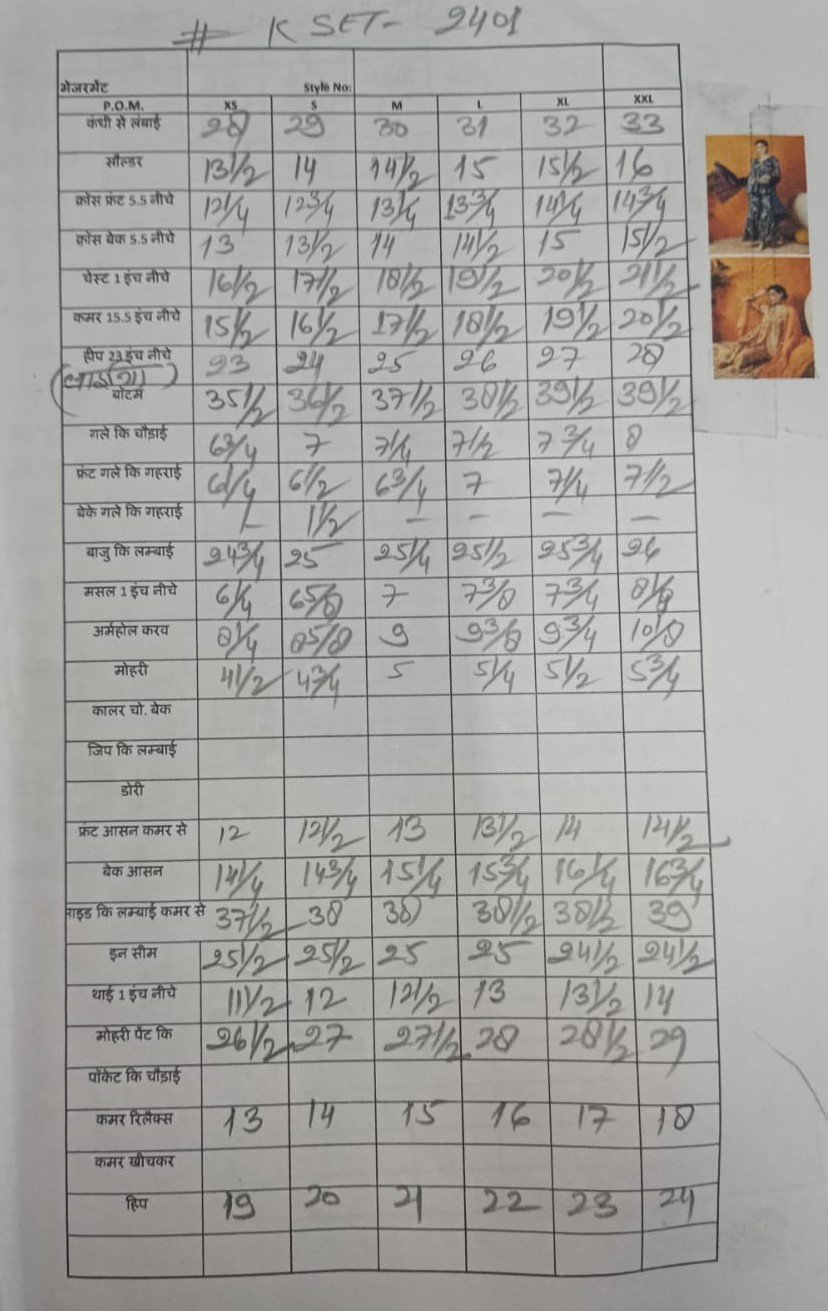 # K SET- 2401
मेजरमेंट Style No:
P.O.M. XS S M L XL XXL
कंधी से लंबाई 28 29 30 31 32 33
सौल्डर 13 1/2 14 14 1/2 15 15 1/2 16
क्रोस फ्रंट 5.5 नीचे 12 1/4 12 3/4 13 1/4 13 3/4 14 1/4 14 3/4
क्रोस बेक 5.5 नीचे 13 13 1/2 14 14 1/2 15 15 1/2
चेस्ट 1 इंच नीचे 16 1/2 17 1/2 18 1/2 19 1/2 20 1/2 21 1/2
कमर 15.5 इंच नीचे 15 1/2 16 1/2 17 1/2 18 1/2 19 1/2 20 1/2
हीप 23 इंच नीचे 23 24 25 26 27 28
बोटम 35 1/2 36 1/2 37 1/2 38 1/2 39 1/2 39 1/2
गले कि चौड़ाई 6 3/4 7 7 1/4 7 1/2 7 3/4 8
फ्रंट गले कि गहराई 6 1/4 6 1/2 6 3/4 7 7 1/4 7 1/2
बेके गले कि गहराई - 1 1/2 - - - -
बाजु कि लम्बाई 24 3/4 25 25 1/4 25 1/2 25 3/4 26
मसल 1 इंच नीचे 6 1/4 6 5/8 7 7 3/8 7 3/4 8 1/8
अर्महोल करव 8 1/4 8 5/8 9 9 3/8 9 3/4 10 1/8
मोहरी 4 1/2 4 3/4 5 5 1/4 5 1/2 5 3/4
कालर चो. बेक
जिप कि लम्बाई
डोरी
फ्रंट आसन कमर से 12 12 1/2 13 13 1/2 14 14 1/2
बेक आसन 14 1/4 14 3/4 15 1/4 15 3/4 16 1/4 16 3/4
साइड कि लम्बाई कमर से 37 1/2 38 38 38 1/2 38 1/2 39
इन सीम 25 1/2 25 1/2 25 25 24 1/2 24 1/2
थाई 1 इंच नीचे 11 1/2 12 12 1/2 13 13 1/2 14
मोहरी पैंट कि 26 1/2 27 27 1/2 28 28 1/2 29
पॉकेट कि चौड़ाई
कमर रिलैक्स 13 14 15 16 17 18
कमर खीचकर
हिप 19 20 21 22 23 24